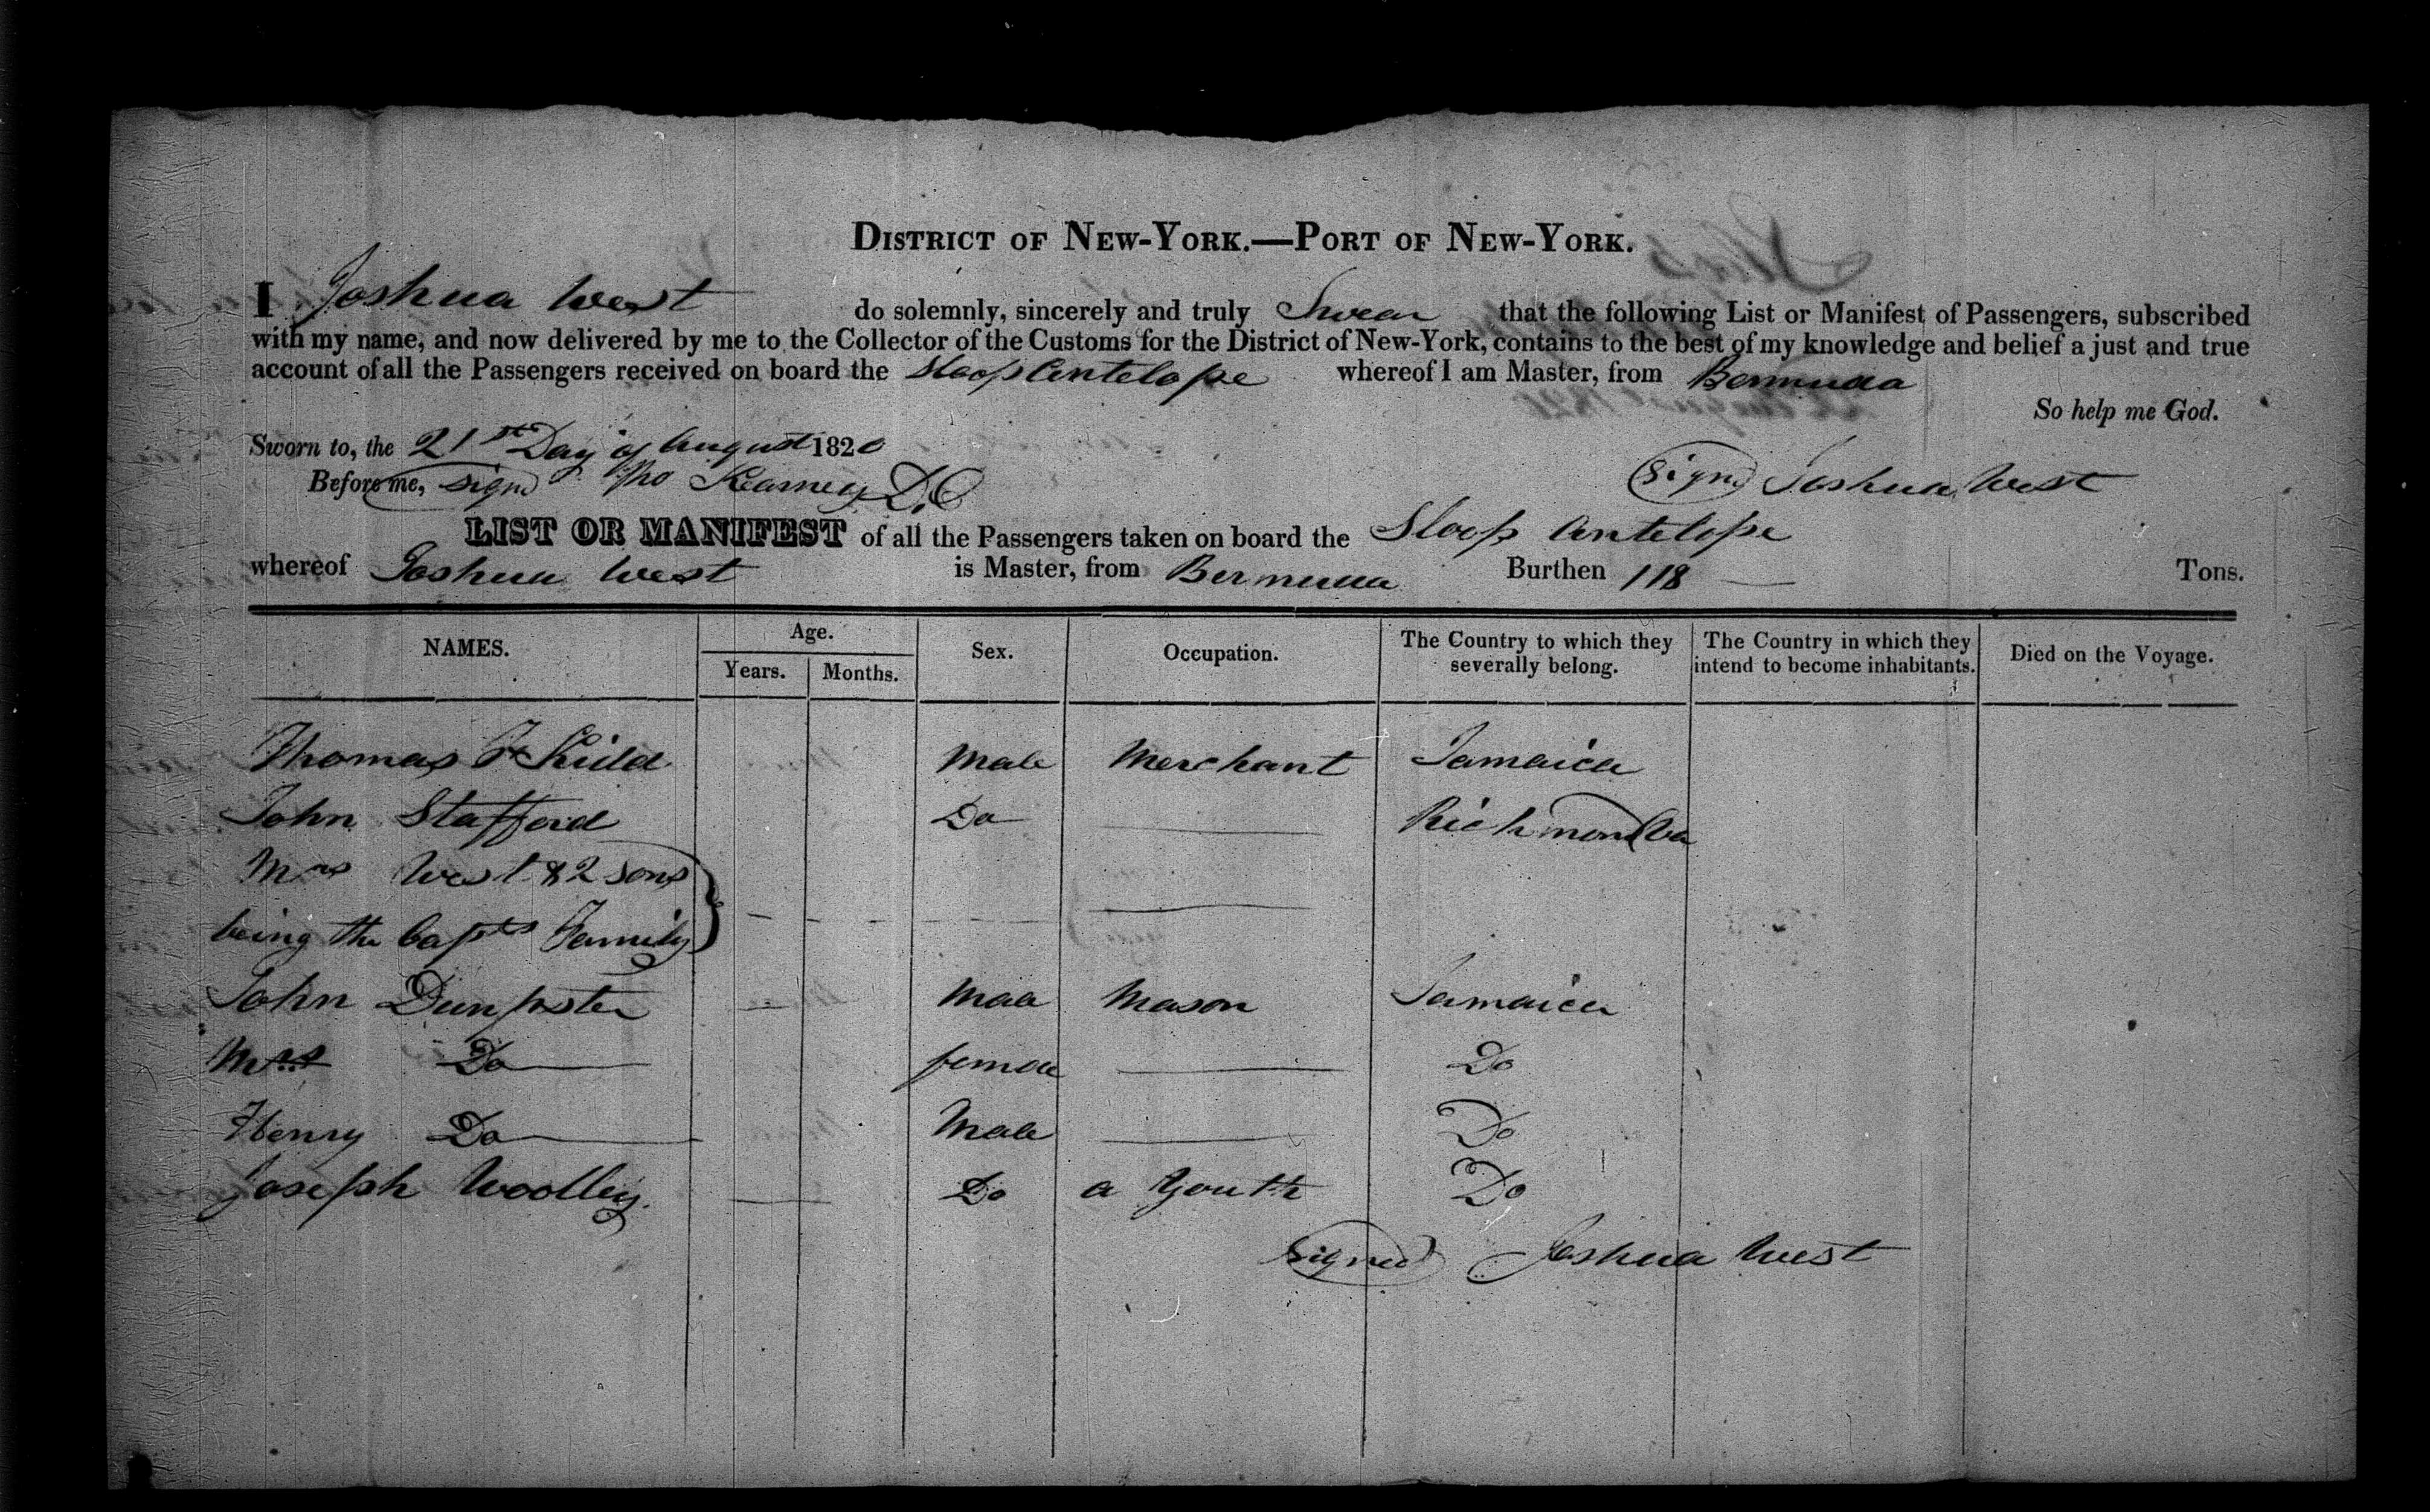 DISTRICT OF NEW-YORK.—PORT OF NEW-YORK.
I Joshua West do solemnly, sincerely and truly Swear that the following List or Manifest of Passengers, subscribed
with my name, and now delivered by me to the Collector of the Customs for the District of New-York, contains to the best of my knowledge and belief a just and true
account of all the Passengers received on board the Sloop Antelope whereof I am Master, from Bermuda
So help me God.
Sworn to, the 21st Day of August 1820
Before me, sign Tho Kearney D.C
(Sign) Joshua West
LIST OR MANIFEST of all the Passengers taken on board the Sloop Antelope
whereof Joshua West is Master, from Bermuda Burthen 118 Tons.
NAMES. Age. Years. Months. Sex. Occupation. The Country to which they severally belong. The Country in which they intend to become inhabitants. Died on the Voyage.
Thomas Kidd Male Merchant Jamaica
John Stafford Do Richmond Va
Mrs West & 2 sons
being the Capts Family
John Mae Mason Jamaica
Mrs Do femae Do
Henry Do Male Do
Joseph Woolley. Do a Youth Do
Signed Joshua West